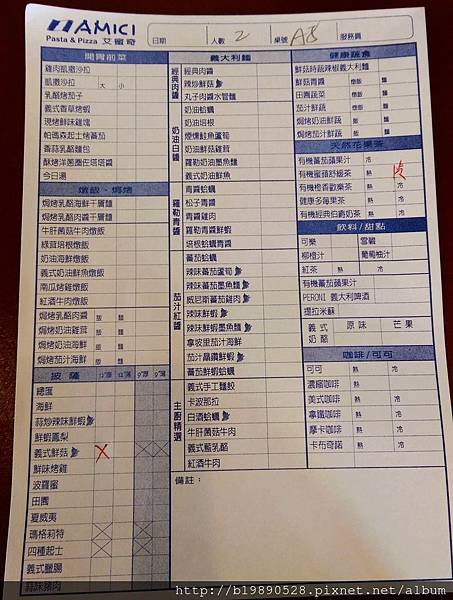 AMICI
Pasta & Pizza 艾蜜奇
日期
人數 2
桌號 A8
服務員
開胃前菜
雞肉凱撒沙拉
凱撒沙拉 大 小
乳酪烤茄子
義式香草烤蝦
現烤鮮味雞塊
帕瑪森起士烤蕃茄
香蒜乳酪麵包
酥烤洋蔥圈佐塔塔醬
今日湯
燉飯．焗烤
焗烤乳酪海鮮千層麵
焗烤乳酪肉醬千層麵
牛肝菌菇牛肉燉飯
綠茸培根燉飯
奶油海鮮燉飯
義式奶油鮮魚燉飯
南瓜烤雞燉飯
紅酒牛肉燉飯
焗烤乳酪肉醬 飯 麵
焗烤奶油雞茸 飯 麵
焗烤奶油海鮮 飯 麵
焗烤茄汁海鮮 飯 麵
披薩
總匯
海鮮
蒜炒辣味鮮蝦
鮮蝦鳳梨
義式鮮菇
鮮味烤雞
波羅蜜
田園
夏威夷
瑪格莉特
四種起士
義式臘腸
蒜味豬肉
義大利麵
經典肉醬
經典肉醬
辣炒鮮菇
丸子肉醬水管麵
奶油白醬
奶油蛤蠣
奶油培根
煙燻鮭魚蘆筍
奶油鮮菇雞茸
羅勒奶油墨魚麵
義式奶油鮮魚
羅勒青醬
青醬蛤蠣
松子青醬
青醬雞肉
羅勒青醬鮮蝦
培根蛤蠣青醬
茄汁紅醬
蕃茄蛤蠣
辣味蕃茄蘆筍
辣味蕃茄墨魚麵
威尼斯蕃茄雞肉
辣味鮮蝦
辣味鮮蝦墨魚麵
拿坡里茄汁海鮮
茄汁晶鑽鮮蝦
蕃茄鮮蝦蛤蠣
主廚精選
義式手工麵餃
卡波那拉
白酒蛤蠣
牛肝菌菇牛肉
義式藍乳酪
紅酒牛肉
備註：
健康蔬食
鮮菇時蔬辣椒義大利麵
鮮菇青醬 燉飯 麵
田園蔬菜 燉飯 麵
茄汁鮮蔬 燉飯 麵
焗烤奶油鮮蔬 飯 麵
焗烤茄汁鮮蔬 飯 麵
天然花果茶
有機蕃茄蘋果汁 冷
有機蜜蘋舒緩茶 熱
有機橙香歡樂茶 熱 冷
健康多莓果茶 熱 冷
有機經典伯爵奶茶 熱 冷
飲料/甜點
可樂 雪碧
柳橙汁 葡萄柚汁
紅茶 熱 冷
有機蕃茄蘋果汁
PERONI 義大利啤酒
提拉米蘇
義式奶酪 原味 芒果
咖啡/可可
可可 熱 冷
濃縮咖啡 熱
美式咖啡 熱 冷
拿鐵咖啡 熱 冷
摩卡咖啡 熱 冷
卡布奇諾 熱 冷
http://b19890528.pixnet.net/album